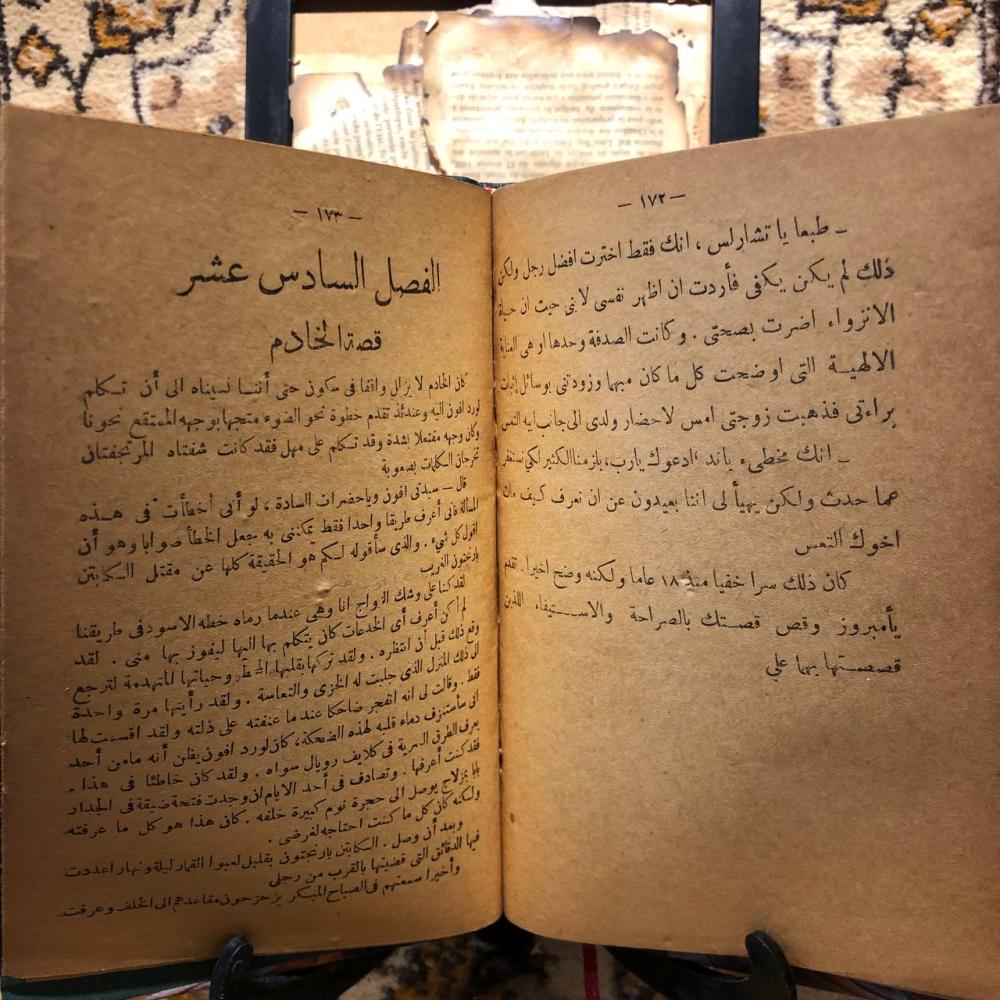 — ١٧٢ —
ـ طبعا يا تشارلس ، انك فقط اخترت افضل رجل ولكن
ذلك لم يكن يكفى فأردت ان اظهر نفسى لانى حيث ان حياة
الانزواء اضرت بصحتى . وكانت الصدفة وحدها او هى العناية
الالهيـة التى اوضحت كل ما كان مبهما وزودتنى بوسائل إثبات
براءتى فذهبت زوجتى امس لاحضار ولدى الى جانب ابيه التعس
ـ انك مخطىء ياند ادعوك يارب، يلزمنا الكثير لكى نستغفر
عما حدث ولكن يهيأ لى اننا بعيدون عن ان نعرف كيف مات
اخوك التعس
كان ذلك سرا خفيا منذ ١٨ عاما ولكنه وضح اخيرا. تقدم
يأمبروز وقص قصـتك بالصراحة والاسـتيفاء اللذين
قصصـتها بهما علي
— ١٧٣ —
الفصل السادس عشر
قصة الخادم
كان الخادم لا يزال واقفا فى سكون حتى أننـا نسيناه الى أن تـكلم
لورد افون اليه وعندئذ تقدم خطوة نحو الضوء متجها بوجهه الممتقع نحونا
وكان وجهه منفعلا بشدة وقد تـكلم على مهل فقد كانت شفتاه المرتجفتان
تخرجان الـكلمات بصعوبة
قال ـ سيدتى افون وياحضرات السادة ، لو أنى أخطأت فى هـذه
المسألة فانى أعرف طريقا واحدا فقط يمكننى به جعل الخطأ صوابا وهو أن
اقول كل شىء . والذى سأقوله لـكم هو الحقيقة كلها عن مقتل الـكابتن
بارنجتون الغريب
لقد كنا على وشك الزواج انا وهى عندما رماه خطه الاسود فى طريقنا
لم أكن أعرف أى الخدعات كان يتكلم بها اليها ليفوز بها منى . لقد
وقع ذلك قبل أن انتظره . ولقد تركها بقلبها وحياتها المتهدمة لترجع
الى ذلك المنزل الذى جلبت له الخزى والتعاسة . ولقد رأيتها مرة واحدة
فقط . وقالت لى انه انفجر ضاحكا عند ما عنفته على ذلته ولقد اقسـمت لها
انى سأستنزف دماء قلبه لهذه الضحكة، كان لورد افون يظن أنه مامن أحد
يعرف الطرق السرية فى كلايف رويال سواه . ولقد كان خاطئا فى هذا .
فقد كنت أعرفها . وتصادف فى أحد الايام ان وجدت فتحة ضيقة فى الجدار
بابا بمزلاج يوصل الى حجرة نوم كبيرة خلفه . كان هذا هو كل ما عرفته
ولـكنه كان كل ما كنت احتاجه لغرضى .
وبعد أن وصل . الـكابتن بارنجتون بقليل لعبوا القمار ليلة ونهار اعددت
فيها الدقائق التى قضيتها بالقرب من رجلى
وأخيرا سمعتهم فى الصباح المبكر يزحزحون مقاعدهم الى الخلف وعرفت